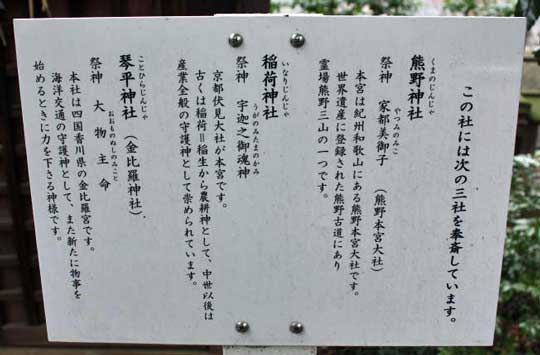 この社には次の三社を奉斎しています。
くまのじんじゃ
熊野神社
やつみのみこ
祭神 家都美御子 （熊野本宮大社）
本宮は紀州和歌山にある熊野本宮大社です。
世界遺産に登録された熊野古道にあり
霊場熊野三山の一つです。
いなりじんじゃ
稲荷神社
うがのみたまのかみ
祭神 宇迦之御魂神
京都伏見大社が本宮です。
古くは稲荷＝稲生から農耕神として、中世以後は
産業全般の守護神として崇められています。
ことひらじんじゃ
琴平神社（金比羅神社）
おおものぬしのみこと
祭神 大物主命
本社は四国香川県の金比羅宮です。
海洋交通の守護神として、また新たに物事を
始めるときに力を下さる神様です。